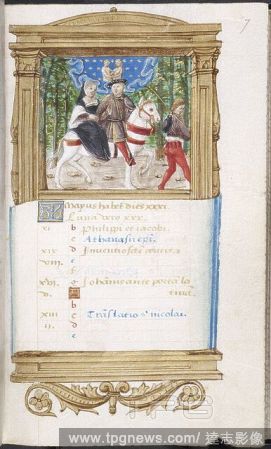 7
Mayus habet dies xxxi.
Luna vero xxx.
xi b Philippi et iacobi
c Athanasii epi.
xix d Inventio scte crucis
viii e
f
xvi g Iohannis ante porta la
v. tina.
c
xiii d Translatio s. nicolai.
ii d
e
www.tpgnews.com/ 達志影像